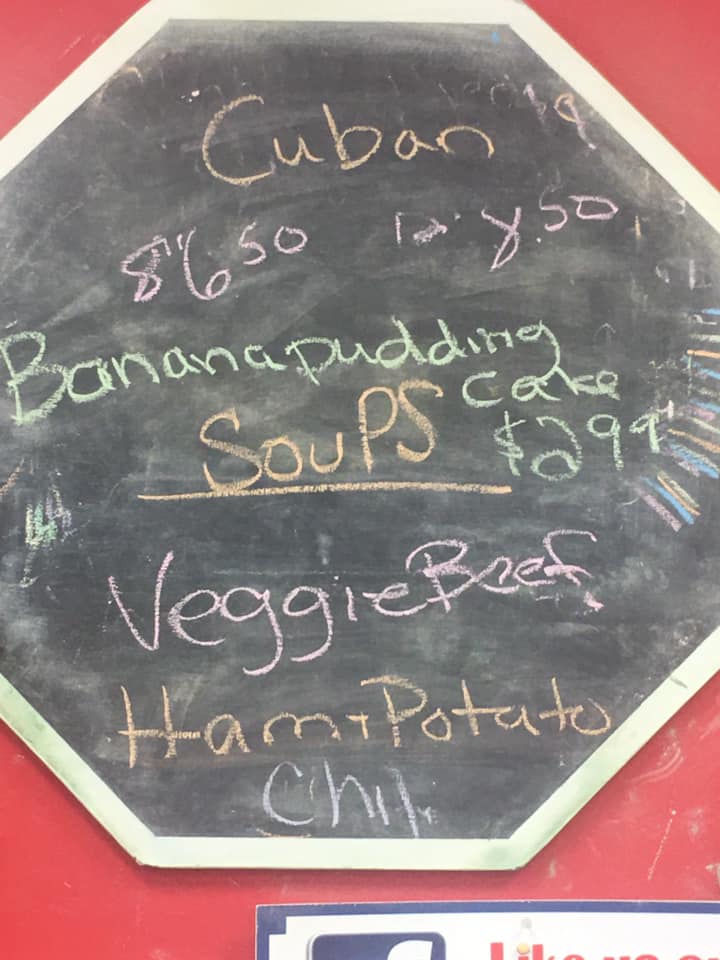 Cuban
8" 6 50 12" 8.50
Banana pudding
cake
$2 99
Soups
Veggie Beef
Ham + Potato
Chili
Like us